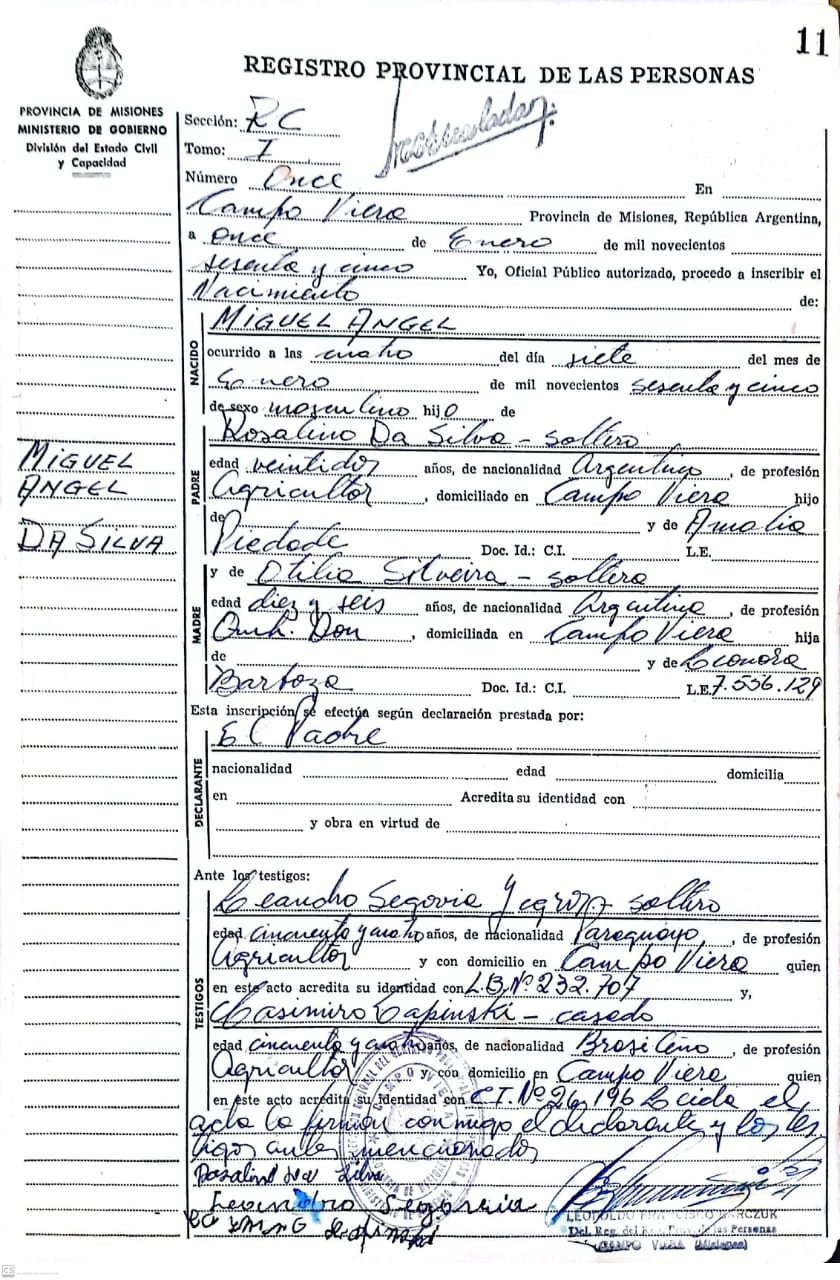 11
REGISTRO PROVINCIAL DE LAS PERSONAS
PROVINCIA DE MISIONES
MINISTERIO DE GOBIERNO
División del Estado Civil
y Capacidad
Sección: RC
Tomo: I
Número Once En
Campo Viera Provincia de Misiones, República Argentina,
a once de Enero de mil novecientos
sesenta y cinco Yo, Oficial Público autorizado, procedo a inscribir el
Nacimiento de:
NACIDO
MIGUEL ANGEL
ocurrido a las cuatro del día siete del mes de
Enero de mil novecientos sesenta y cinco
de sexo masculino hijo de
MIGUEL
ANGEL
DA SILVA
PADRE
Rosalino Da Silva - soltero
edad veintidos años, de nacionalidad Argentino, de profesión
Agricultor, domiciliado en Campo Viera hijo
de y de Amalia
Piedade Doc. Id.: C.I. L.E.
MADRE
y de Otilia Silveira - soltera
edad diez y seis años, de nacionalidad Argentina, de profesión
domiciliada en Campo Viera hija
de y de Leonora
Bartoza Doc. Id.: C.I. L.E. 7.556.129
Esta inscripción se efectúa según declaración prestada por:
El Padre
DECLARANTE
nacionalidad edad domicilia
en Acredita su identidad con
y obra en virtud de
Ante los testigos:
TESTIGOS
Leandro Segovia soltero
edad cincuenta y cuatro años, de nacionalidad Paraguayo, de profesión
Agricultor y con domicilio en Campo Viera quien
en este acto acredita su identidad con Nº 232.707 y,
Casimiro Capinski - casado
edad cincuenta y cuatro años, de nacionalidad Brasileno, de profesión
Agricultor y con domicilio en Campo Viera quien
en este acto acredita su identidad con C.I. Nº 26.196 Leida el
acta la firman conmigo el declarante y los tes
tigos antes mencionados
Rosalino Da Silva
Leandro Segovia
LEOPOLDO FRANCISCO
Del. Reg. del Reg. Prov. de las Personas
CAMPO VIERA (Misiones)
CS